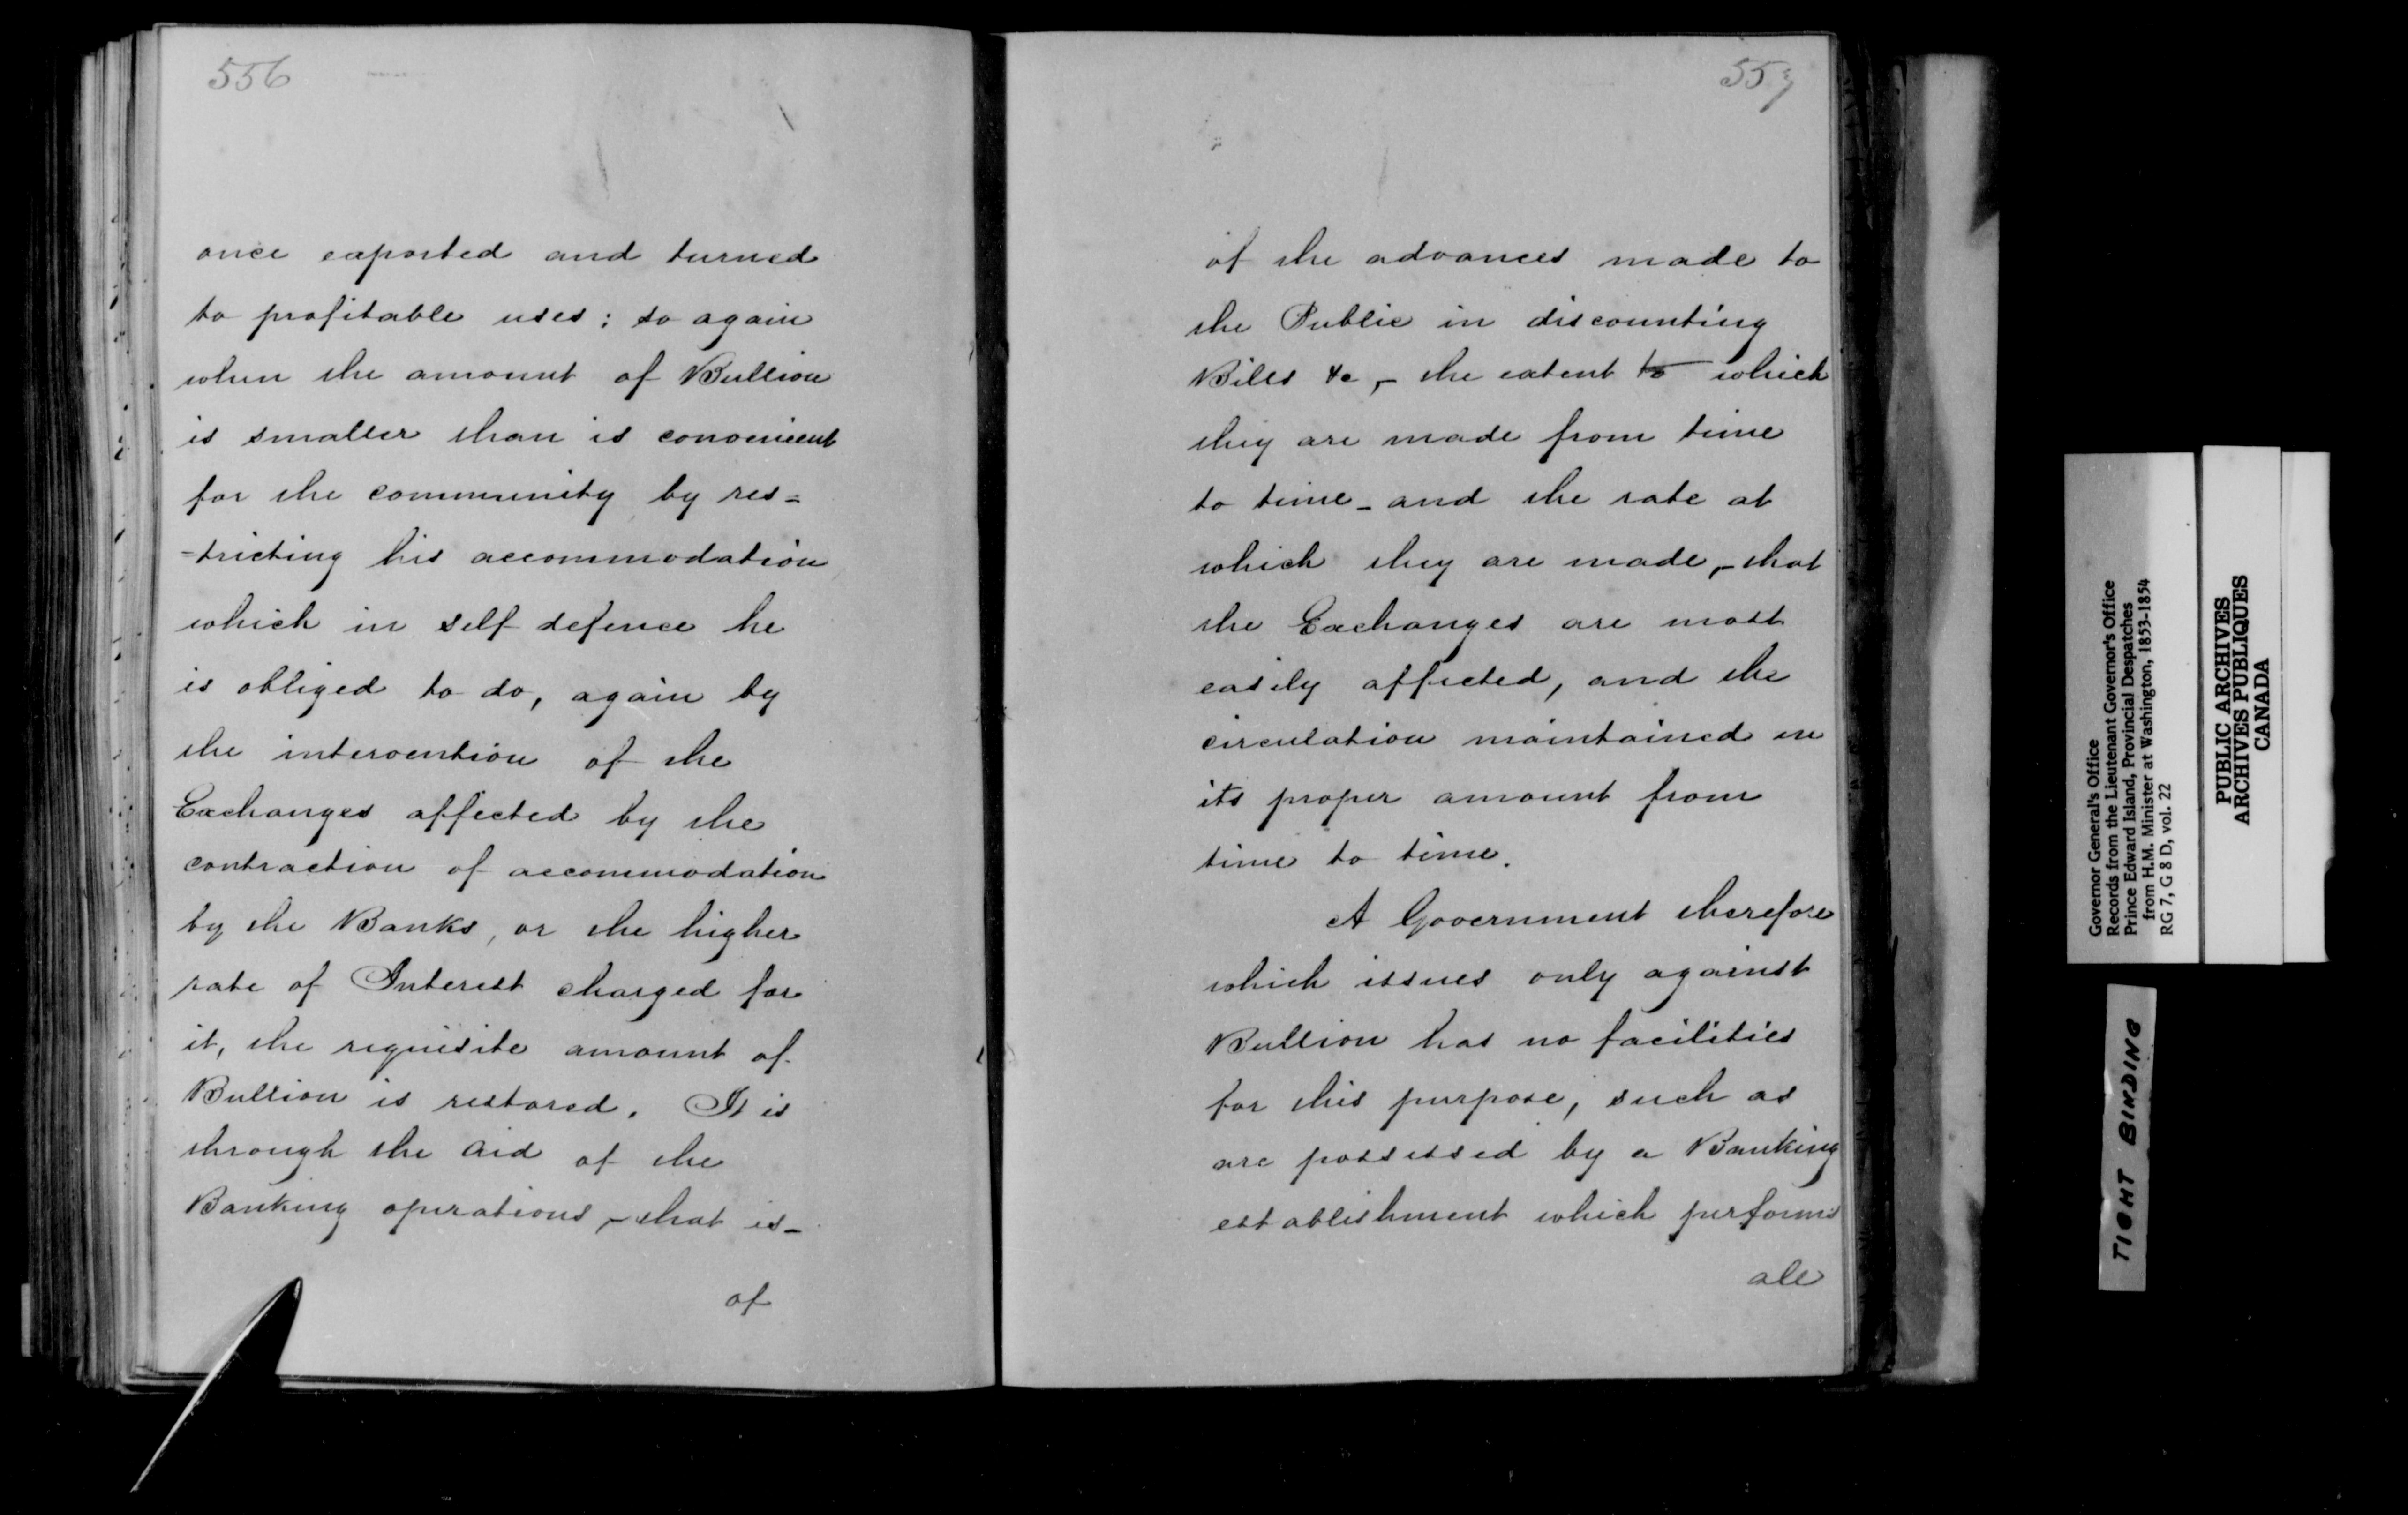 556
once exported and turned
to profitable uses; so again
when the amount of Bullion
is smaller than is convenient
for the community by res=
=tricting his accommodation
which in self defence he
is obliged to do, again by
the intervention of the
Exchanges affected by the
contraction of accommodation
by the Banks, or the higher
rate of Interest charged for
it, the requisite amount of
Bullion is restored. It is
through the aid of the
Banking operations, - that is -
of
557
of the advances made to
the Public in discounting
Bills &c, - the extent to which
they are made from time
to time - and the rate at
which they are made, - that
the Exchanges are most
easily affected, and the
circulation maintained in
its proper amount from
time to time.
A Government therefore
which issues only against
Bullion has no facilities
for this purpose, such as
are possessed by a Banking
establishment which performs
all
Governor General's Office
Records from the Lieutenant Governor's Office
Prince Edward Island, Provincial Despatches
from H.M. Minister at Washington, 1853-1854
RG 7, G 8 D, vol. 22
PUBLIC ARCHIVES
ARCHIVES PUBLIQUES
CANADA
TIGHT BINDING